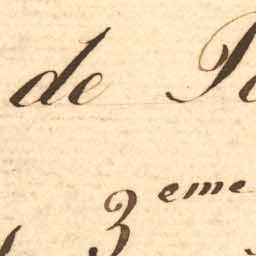 de
3eme